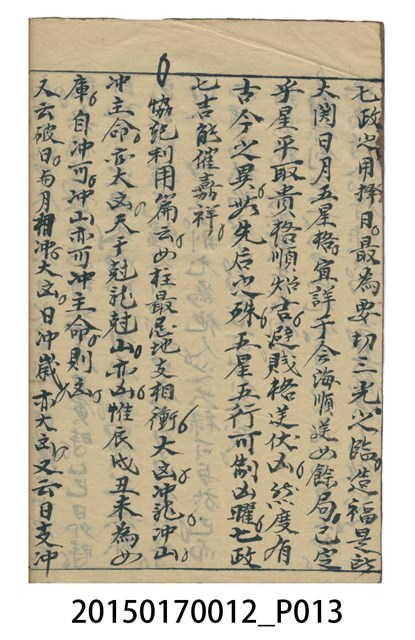 七政之用擇日最為要切三光之臨造福是
大関日月五星格局詳于今海順逆如餘局已定
乎星平取貴格順炤吉避賤格逆伏凶然度有
古今之異此先后之殊五星五行可制凶曜七政
七吉能催嘉祥
協紀利用篇云四柱最忌地支相衝大凶冲龍冲山
冲主命亦大凶天干尅龍尅山亦凶惟辰戌丑未為四
庫自冲可冲山亦可冲主命則凶
又云破日與月相冲大凶日冲歲亦大凶又云日支冲
20150170012_P013